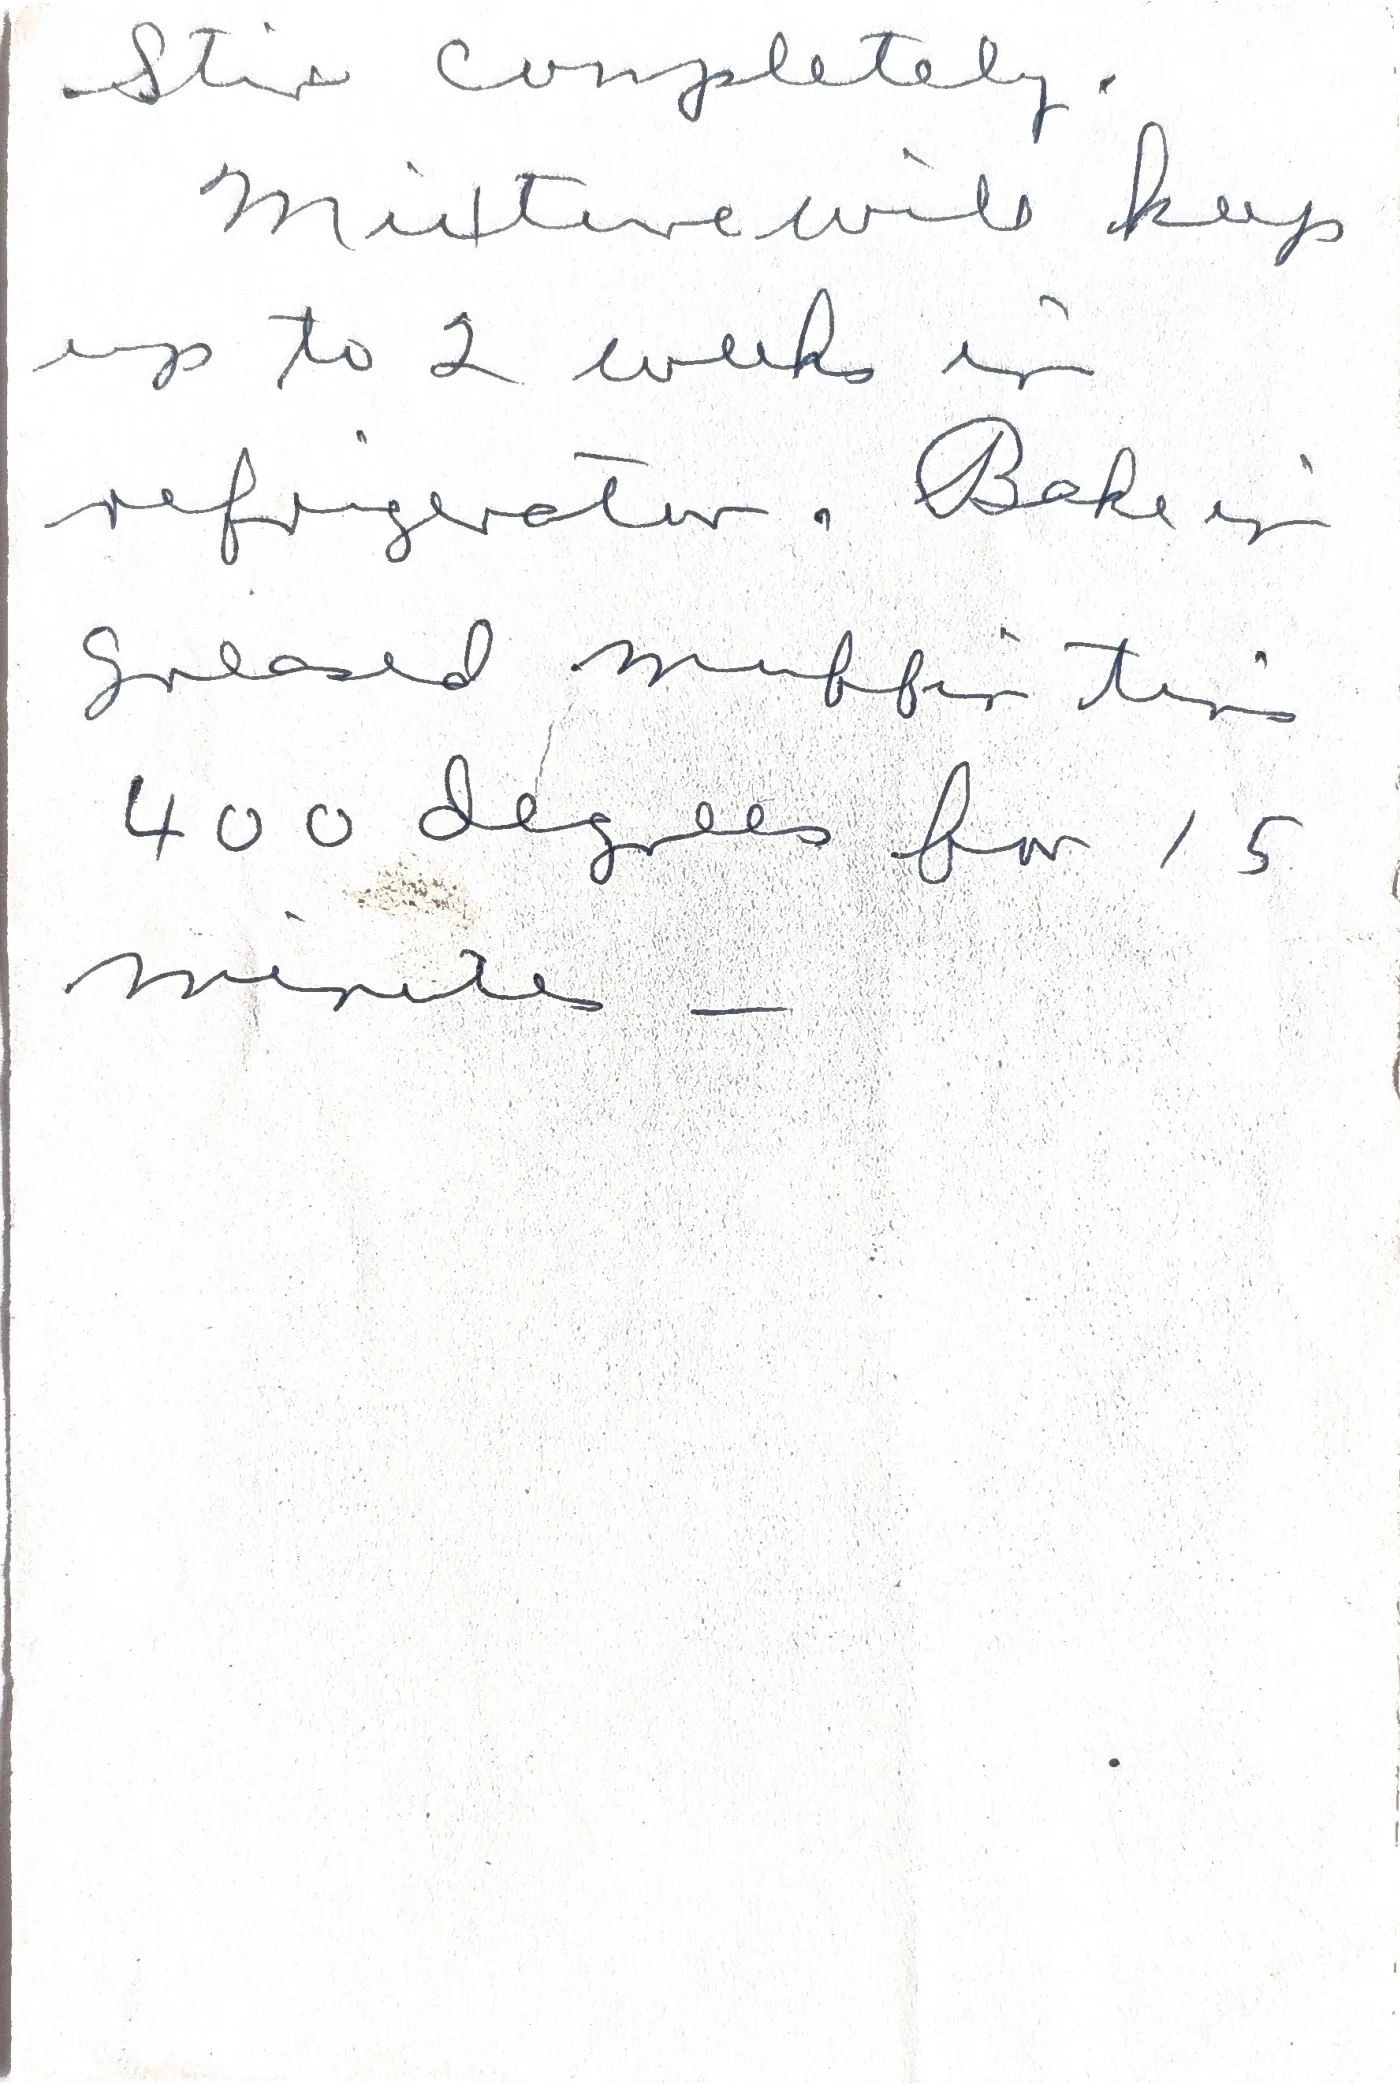 Stir completely.
Mixture will keep
up to 2 weeks in
refrigerator. Bake in
greased muffin tins
400 degrees for 15
minutes —